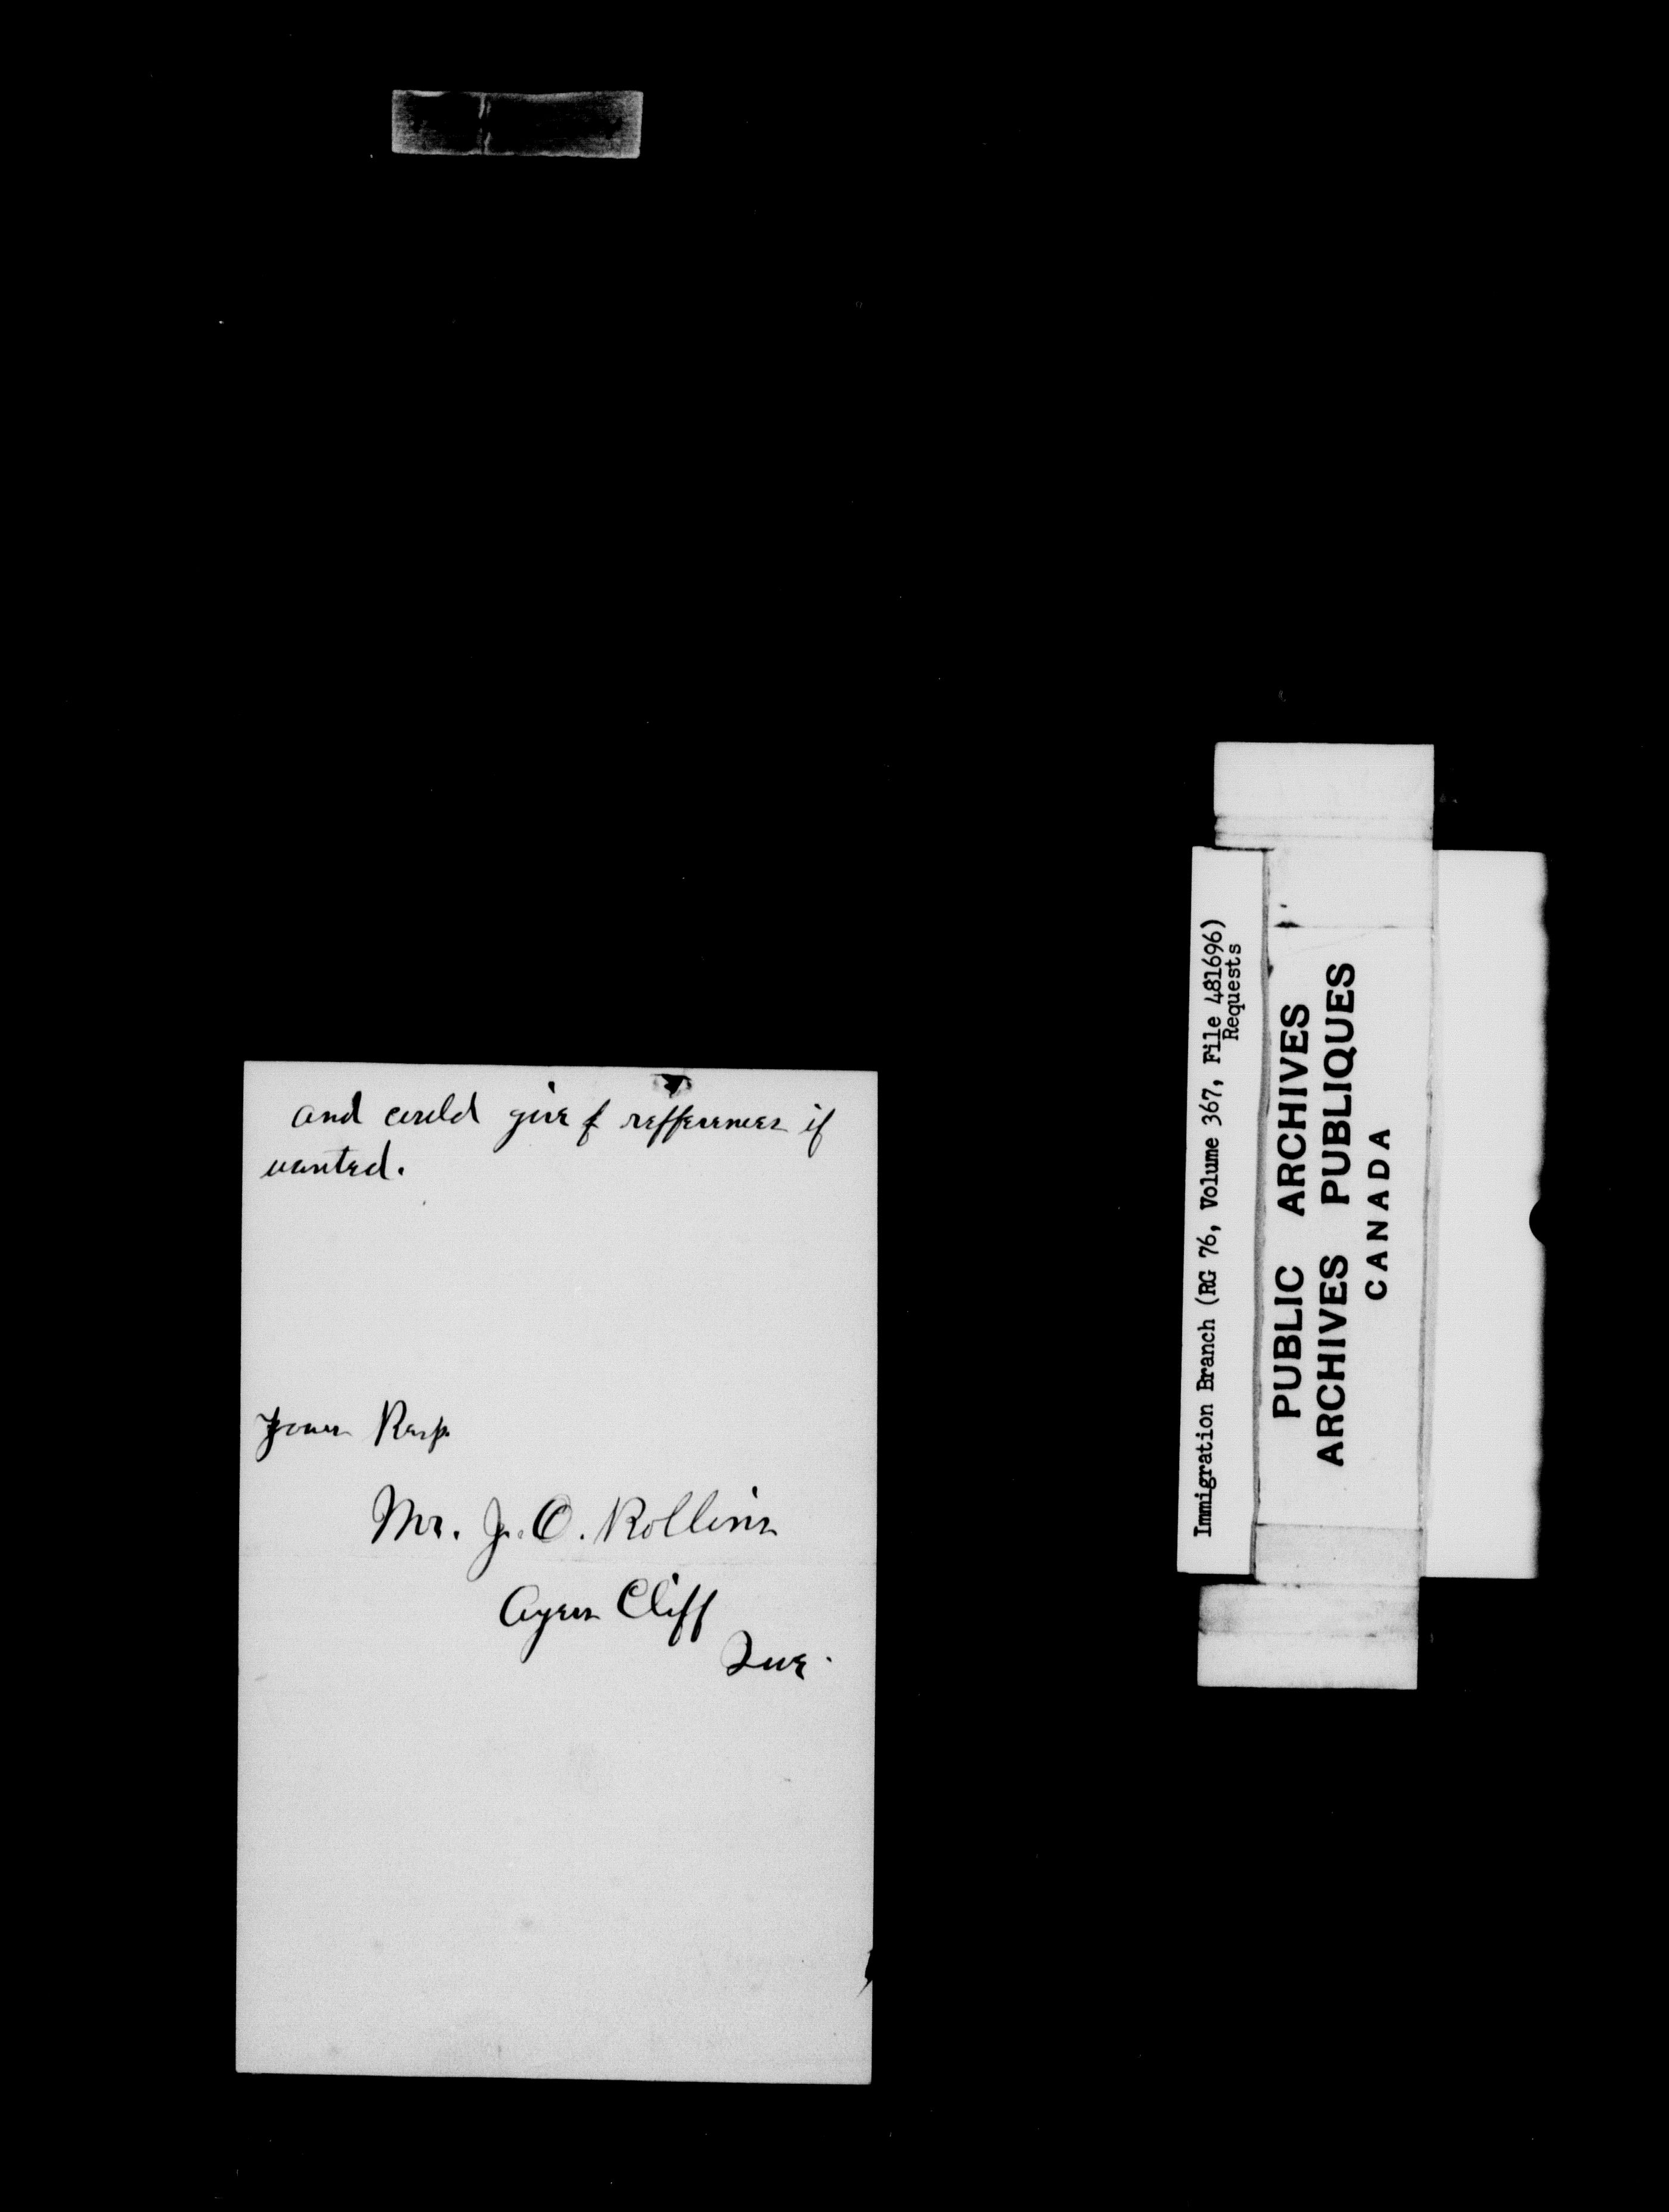 and could give f refferences if
wanted.
yours Resp.
Mr. J. O. Rollins
Ayers Cliff
Que.
Immigration Branch (RG 76, Volume 367, File 481696)
Requests
PUBLIC ARCHIVES
ARCHIVES PUBLIQUES
CANADA